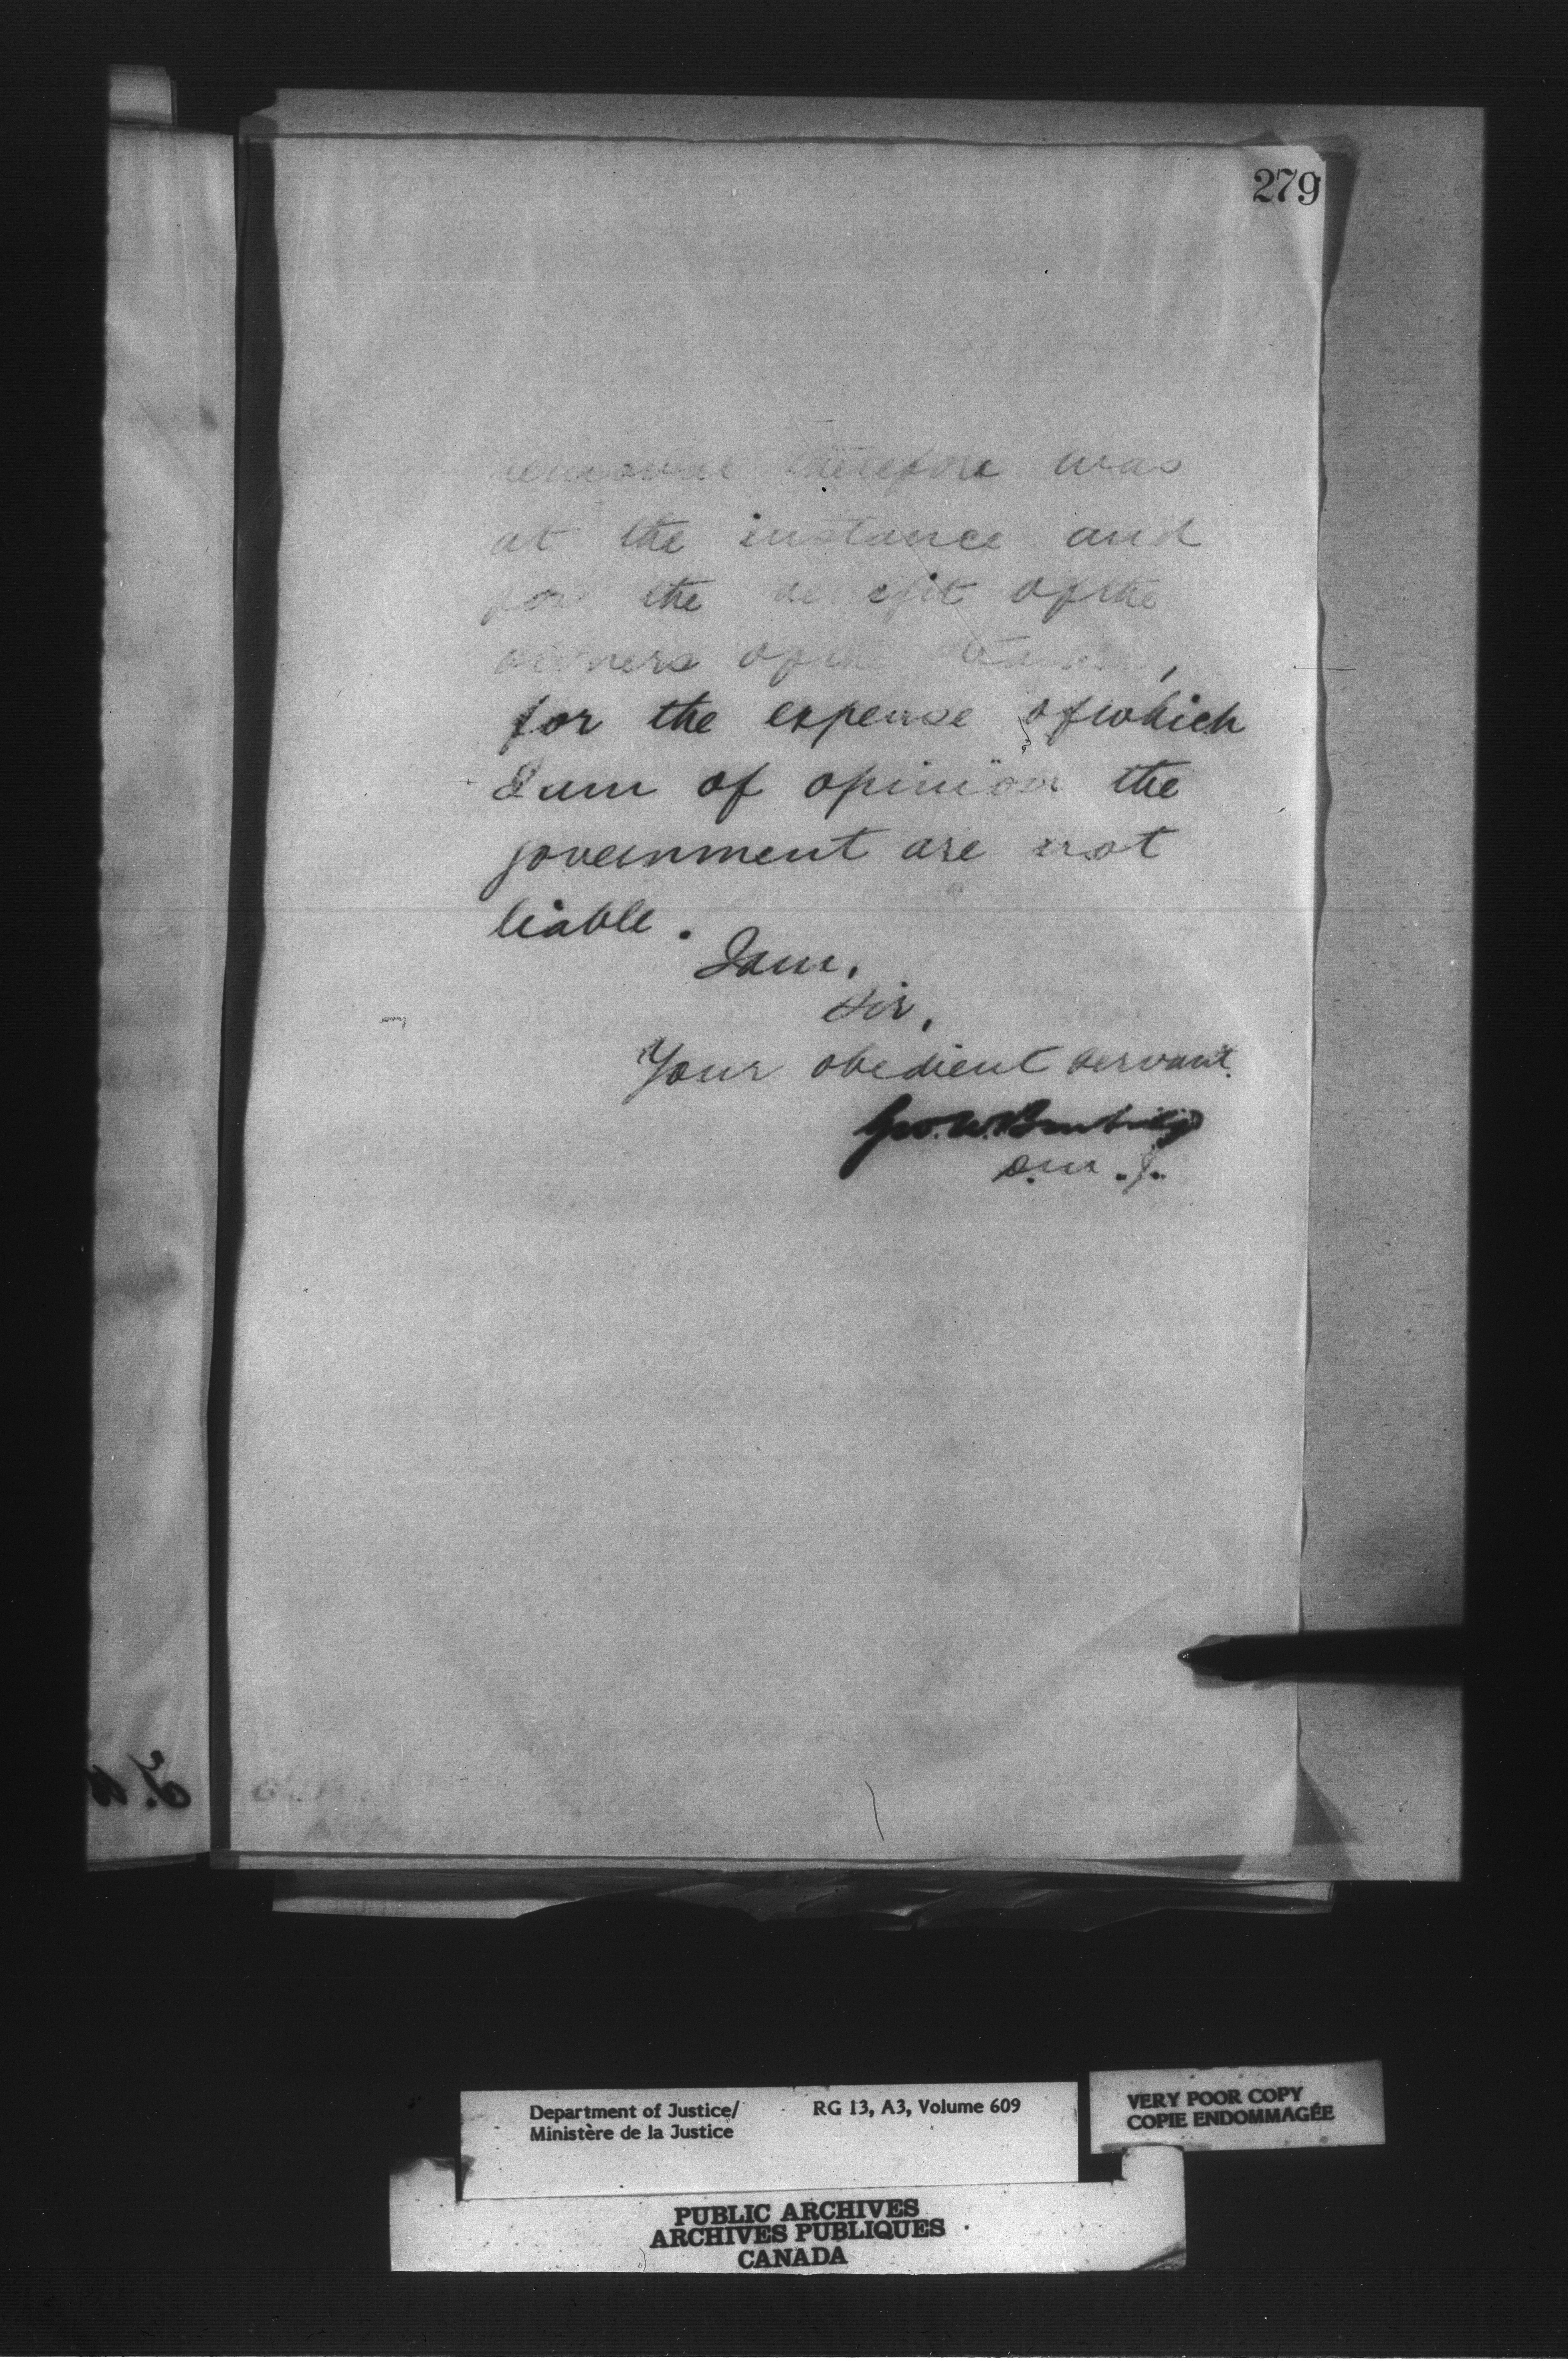 279
removal therefore was
at the instance and
for the benefit of the
owners of the
for the expense of which
I am of opinion the
government are not
liable.
I am,
Sir,
Your obedient servant.
Geo. W. Burbidge
D.M.J.
Department of Justice/ RG 13, A3, Volume 609
Ministère de la Justice
VERY POOR COPY
COPIE ENDOMMAGÉE
PUBLIC ARCHIVES
ARCHIVES PUBLIQUES
CANADA